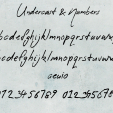 Undercast & Numbers
abcdefghijklmnopqrstuvw
abcdefghijklmnopqrstuvw
aeuio
0123456789 0123456789